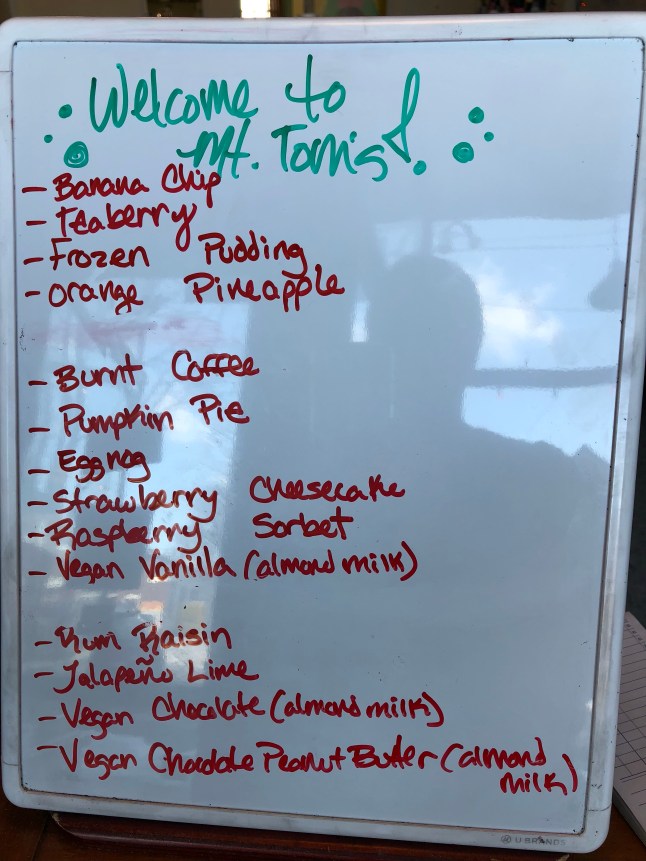 Welcome to
Mt. Tom's!
- Banana Chip
- Teaberry
- Frozen Pudding
- Orange Pineapple
- Burnt Coffee
- Pumpkin Pie
- Eggnog
- Strawberry Cheesecake
- Raspberry Sorbet
- Vegan Vanilla (almond milk)
- Rum Raisin
- Jalapeño Lime
- Vegan Chocolate (almond milk)
- Vegan Chocolate Peanut Butter (almond
milk)
U BRANDS